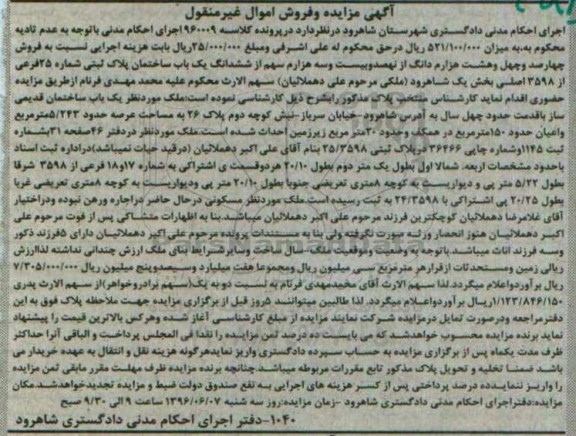 آگهی مزایده وفروش اموال غیرمنقول
اجرای احکام مدنی دادگستری شهرستان شاهرود درنظردارد درپرونده کلاسه ۹۶۰۰۰۹ اجرای احکام مدنی باتوجه به عدم تادیه
محکوم به،به میزان ۵۲۱/۱۰۰/۰۰۰ ریال درحق محکوم له علی اشرفی ومبلغ ۲۵/۰۰۰/۰۰۰ریال بابت هزینه اجرایی نسبت به فروش
چهارصد وچهل وهشت هزارم دانگ از نهصدوبیست وسه هزارم سهم از ششدانگ یک باب ساختمان پلاک ثبتی شماره ۲۵فرعی
از ۳۵۹۸ اصلی بخش یک شاهرود (ملکی مرحوم علی دهملائیان) سهم الارث محکوم علیه محمد مهدی فرنام ازطریق مزایده
حضوری اقدام نماید کارشناس منتخب پلاک مذکور رابشرح ذیل کارشناسی نموده است:ملک موردنظر یک باب ساختمان قدیمی
ساز باقدمت حدود چهل سال به آدرس شاهرود خیابان سرباز -نبش کوچه دوم پلاک ۲۶ به مساحت عرصه حدود ۲۴۳/۵مترمربع
واعیان حدود ۱۵۰مترمربع در همکف وحدود ۲۰متر مربع زیرزمین احداث شده است.ملک موردنظر دردفتر ۴۶صفحه ۳۱بشماره
ثبت ۱۱۴۵وشماره چاپی ۳۶۴۶۶ درپلاک ثبتی ۲۵/۳۵۹۸ بنام آقای علی اکبر دهملائیان (درقید حیات نمیباشد)دراداره ثبت اسناد
باحدود مشخصات اربعه. شمالا اول بطول یک متر دوم بطول ۲۰/۱۰ هردوقسمت ی اشتراکی به شماره ۱۷و۱۸ فرعی از ۳۵۹۸ شرقا
بطول ۵/۲۲ متر پی و دیواریست به کوچه ۸متری تعریضی جنوبا بطول ۲۰/۱۰ متر پی ودیواریست به کوچه ۸متری تعریضی غربا
بطول ۲۰/۲۵ پی اشتراکی با ۲۴/۳۵۹۸ به ثبت رسیده است.ملک موردنظر مسکونی درحال حاضر دراجاره ورهن نبوده ودراختیار
آقای غلامرضا دهملائیان کوچکترین فرزند مرحوم علی اکبر دهملائیان میباشد.بنا به اظهارات متشاکی پس از فوت مرحوم علی
اکبر دهملائیان هنوز انحصار وراثه صورت نگرفته ولی بنا به مستندات پرونده مرحوم علی اکبر دهملائیان دارای ۵فرزند ذکور
وسه فرزند اناث میباشد.باتوجه به وضعیت وموقعیت محل-سال ساخت وسایر شرایط بنای ملک ارزش چندانی نداشته لذاارزش
ریالی زمین ومستحدثات ازقرارهر مترمربع سی میلیون ریال ومجموعا هفت میلیارد وسیصدوپنج میلیون ریال ۷/۳۰۵/۰۰۰/۰۰۰
ریال برآورداعلام میگردد.لذا سهم الارث آقای محمدمهدی فرنام به نسبت دو به یک(سهم برادروخواهر)از سهم الارث پدری
۱/۱۲۳/۸۴۶/۱۵۰ریال برآورداعلام میگردد. لذا طالبین میتوانند ۵روز قبل از برگزاری مزایده جهت ملاحظه پلاک فوق به این
دفترمراجعه ودرصورت تمایل درمزایده شرکت نمایند مزایده از مبلغ کارشناسی آغاز شده وهرکس بالاترین قیمت را پیشنهاد
نماید برنده مزایده محسوب خواهدشد که می بایست ده درصد ثمن مزایده را نقدا فی المجلس پرداخت و الباقی آنرا حداکثر
ظرف مدت یکماه پس از برگزاری مزایده به حساب سپرده دادگستری واریز نمایدهرگونه هزینه نقل و انتقال به عهده خریدار می
باشد ضمنا تخلیه و تحویل پلاک مذکور تابع مقررات مربوطه میباشد.چنانچه برنده مزایده ظرف مهلت مقرر مابقی ثمن مزایده
را واریز ننمایدده درصد پرداختی پس از کسر هزینه های اجرایی به نفع صندوق دولت ضبط و مزایده تجدیدخواهدشد.مکان
مزایده:دفتراجرای احکام مدنی دادگستری شاهرود -زمان مزایده:روز سه شنبه ۱۳۹۶/۰۶/۰۷ ساعت ۹ الی ۹/۳۰ صبح
۱۰۴۰-دفتر اجرای احکام مدنی دادگستری شاهرود